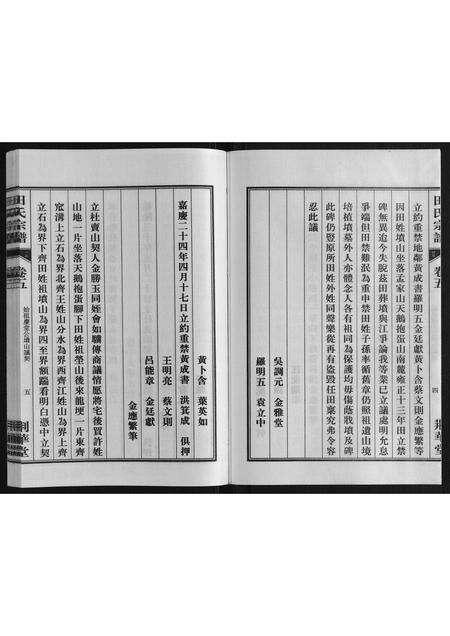 田氏宗譜
卷五
四
荆華堂
立約重禁地鄰黃成書羅明五金廷獻黃卜含蔡文則金應繁等
因田姓墳山坐落孟家山天鵝抱蛋山南龍雍正十三年田立禁
碑無異迨今失脫茲田葬墳與江爭論我等業已立議處明允息
爭端但田禁難泯為重申禁田姓子孫率循舊章仍照祖遺山境
培植墳墓外人亦體念人各有祖同為保護均毋傷蔭戕墳及碑
此碑仍豎原所田姓外姓同聲樂從再有盜毀任田稟究弗令容
忍此議
吳調元　金雅堂
羅明五　袁立中
黃卜含　葉英如
嘉慶二十四年四月十七日立約重禁黃成書　洪箕成　俱押
王明亮　蔡文則
呂能章　金廷獻
金應繁筆
立杜賣山契人金勝玉同姪會如驥傳商議情愿將宅後買許姓
山地一片坐落天鵝抱蛋腳下田姓祖塋山後來龍埂一片東齊
窊溝上立石為界北齊王姓山分水為界西齊江姓山為界上齊
立石為界下齊田姓祖墳山為界四至界額踏看明白憑中立契
田氏宗譜
卷五
始祖慶堂公墳山議契
五
荆華堂